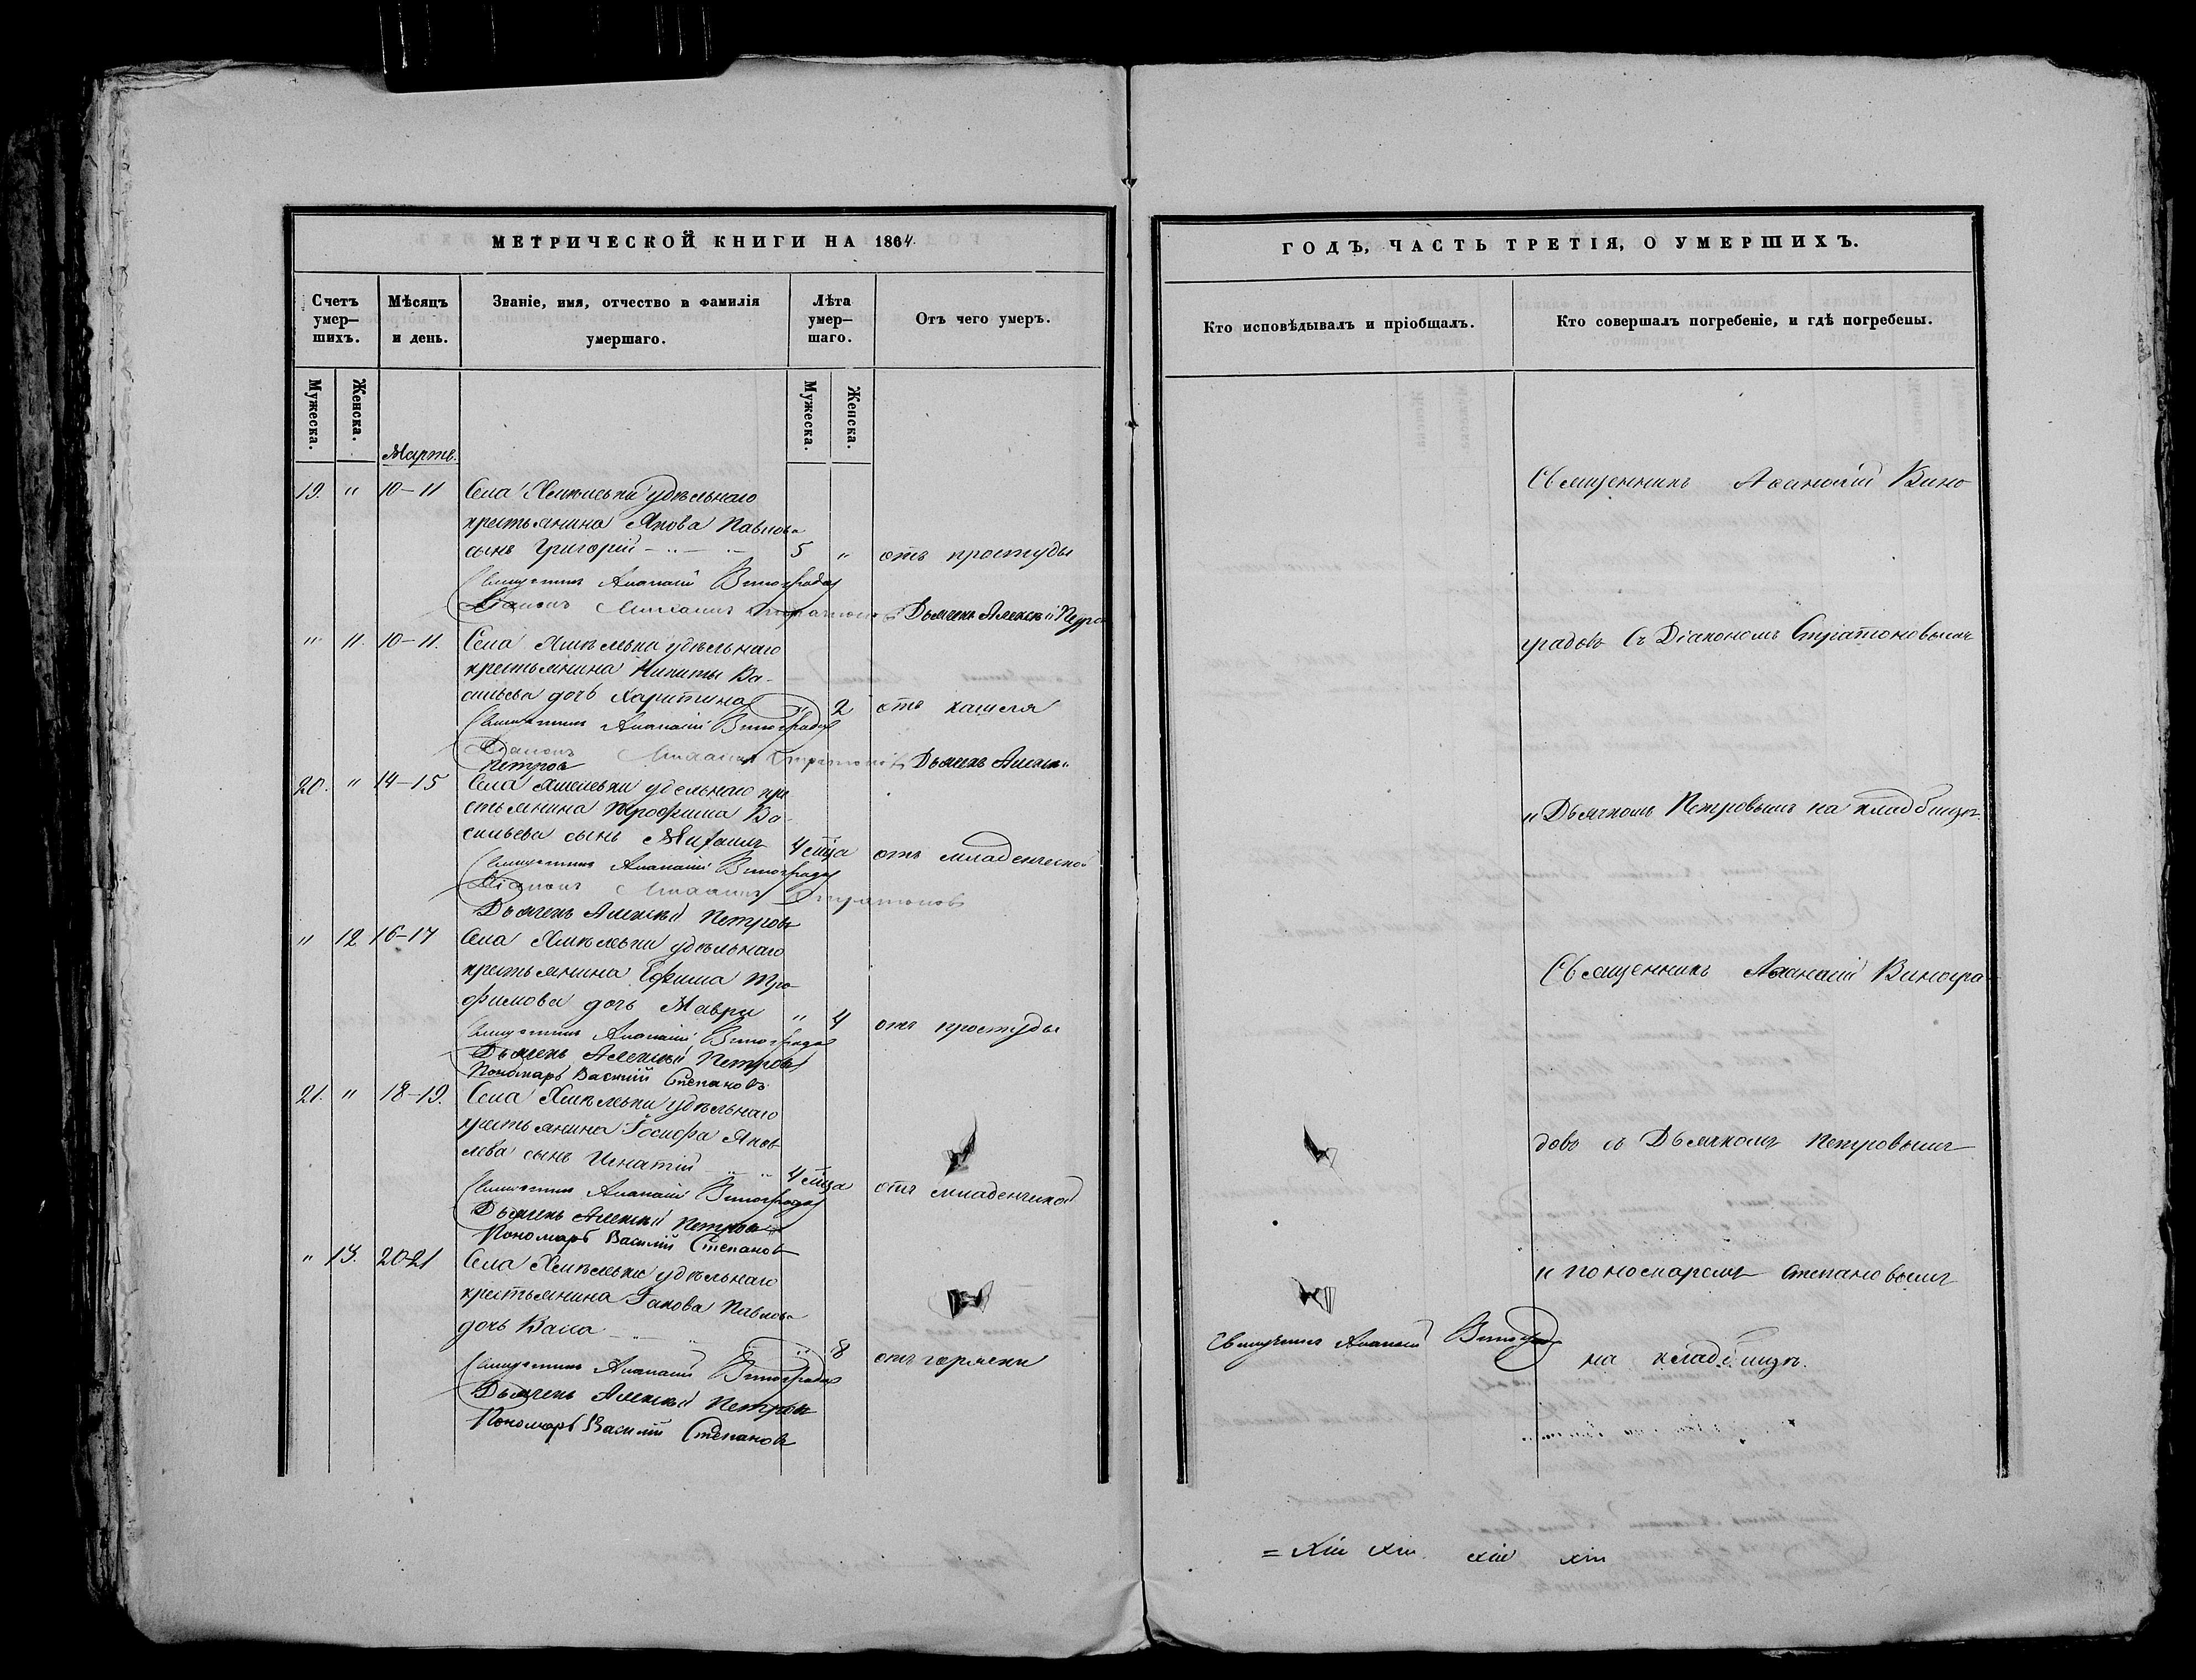 МЕТРИЧЕСКОЙ КНИГИ НА 1864.
Счетъ умер-шихъ.
Мѣсяцъ и день.
Званіе, имя, отчество и фамилія умершаго.
Лѣта умер-шаго.
Отъ чего умеръ.
Мужеска.
Женска.
Мужеска.
Женска.
Мартъ.
19. " 10-11 Села удѣльнаго
крестьянина Якова Павлова
сынъ Григорій 5 " отъ простуды
Священникъ Аѳанасій Виноградовъ
Діаконъ Михаилъ Стратоновъ Дьячекъ Алексѣй Петро
" 11. 10-11. Села Хмѣлевки удѣльнаго
крестьянина Никиты Ва-
сильева дочь Харитина " 2 отъ кашля
Священникъ Аѳанасій Виноградовъ
Діаконъ Михаилъ Стратоновъ Дьячекъ Алексѣй
Петровъ
20. " 14-15 Села Хмѣлевки удельнаго кре
стьянина Трофима Ва-
сильева сынъ Михаилъ 4 м͠ца отъ младенческой
Священникъ Аѳанасій Виноградовъ
Діаконъ Михаилъ Стратоновъ
Дьячекъ Алексѣй Петровъ
" 12 16-17 Села Хмѣлевки удѣльнаго
крестьянина Ефима Тро-
фимова дочь Мавра " 4 отъ простуды
Священникъ Аѳанасій Виноградовъ
Дьячекъ Алексѣй Петровъ
Пономарь Василій Степановъ
21. " 18-19. Села Хмѣлевки удѣльнаго
крестьянина Іосифа Яков
лева сынъ Игнатій 4 м͠ца отъ младенческой
Священникъ Аѳанасій Виноградовъ
Дьячекъ Алексѣй Петровъ
Пономарь Василій Степановъ
" 13. 20-21 Села Хмѣлевки удѣльнаго
крестьянина Іакова Павлова
дочь Васса " 8 отъ горячки
Священникъ Аѳанасій Виноградовъ
Дьячекъ Алексѣй Петровъ
Пономарь Василій Степановъ
ГОДЪ, ЧАСТЬ ТРЕТІЯ, О УМЕРШИХЪ.
Кто исповѣдывалъ и пріобщалъ.
Кто совершалъ погребеніе, и гдѣ погребены.
Священникъ Аѳанасій Вино
градовъ съ Діакономъ Стратоновымъ
и Дьячкомъ Петровымъ на кладбищѣ.
Священникъ Аѳанасій Виногра
довъ съ Дьячкомъ Петровымъ
и пономаремъ Степановымъ
Священникъ Аѳанасій Виноградовъ
на кладбищѣ.
= XIII XIII. XIII XIII